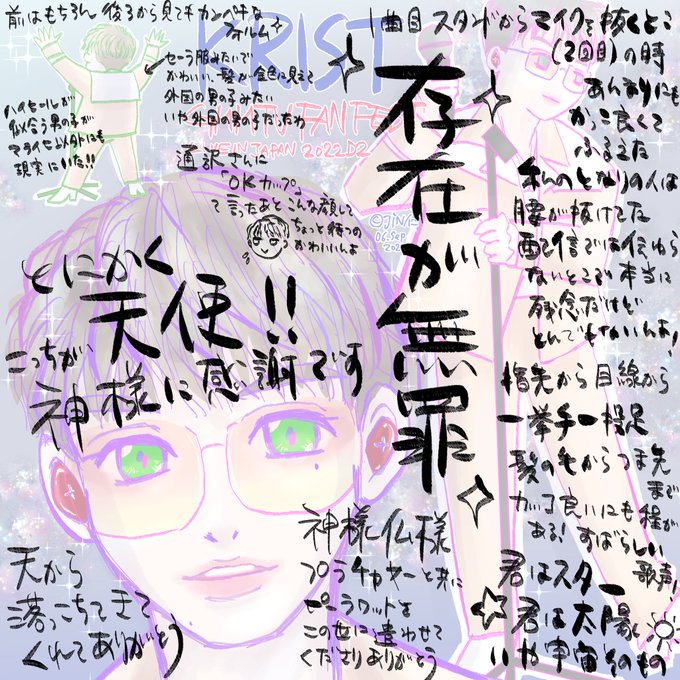 前はもちろん 後ろから見てもカンペキな
フォルム
セーラー服みたいで
かわいい、髪が金色に見えて
外国の男の子みたい
いや外国の男の子だったわ
ハイセールが
似合う男の子が
現実にいた!!
KRIST
IN JAPAN 2022.02
通訳さんに
「OKカップ。」
て言ったあとこんな顔して
ちょっと待つの
かわいいんよ
とにかく
天使!!
こっちが
神様に感謝です
天から
落っこちてきて
くれてありがとう
神様仏様
プラチャヤーと共に
ピーラワットを
この世に遣わせて
くださりありがとう
存在が無罪
1曲目 スタンドからマイクを抜くとこ
(2回目)の時
あんまりにも
かっこ良くて
ふるえた
私のとなりの人は
腰が抜けてた
配信では伝わら
ないとこで本当に
残念だけど
とんでもないんよ!
指先から目線から
一挙手一投足
髪の毛からつま先
まで
カッコ良いにも程が
ある! すばらしい
歌声!
君はスター
君は太陽
いや宇宙そのもの